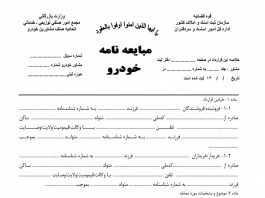 یا ایها الذین آمنوا اوفوا بالعقود
قوه قضائیه
سازمان ثبت اسناد و املاک کشور
اداره کل امور اسناد و سردفتران
وزارت بازرگانی
مجمع امور صنفی توزیعی - خدماتی
اتحادیه صنف مشاورین خودرو
مبایعه نامه
خودرو
خلاصه این قرارداد در صفحه
دفتر ثبت
مشاور، جلد
به شماره
در
تاریخ / / ۱۳ ثبت شده است
شماره مسلسل
مشاور خودرو شماره
حوزه ثبتی
ماده ۱ : طرفین قرارداد
۱-۱- فروشنده/فروشندگان
فرزند
به شماره شناسنامه
صادره از
کدملی
متولد
ساکن
تلفن
با وکالت/قیمومیت/ولایت/وصایت
فرزند
به شماره شناسنامه
متولد
بموجب
۱-۲- خریدار/خریداران
فرزند
به شماره شناسنامه
صادره از
کدملی
متولد
ساکن
تلفن
با وکالت/قیمومیت/ولایت/وصایت
فرزند
به شماره شناسنامه
متولد
بموجب
ماده ۲ : موضوع و مشخصات مورد معامله